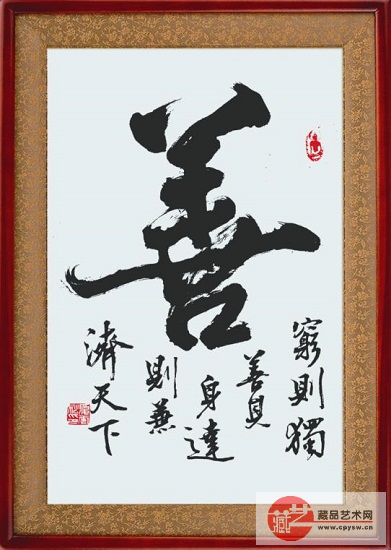 善
窮則獨
善其
身達
則兼
濟天下
藏品艺术网
www.cpysw.cn